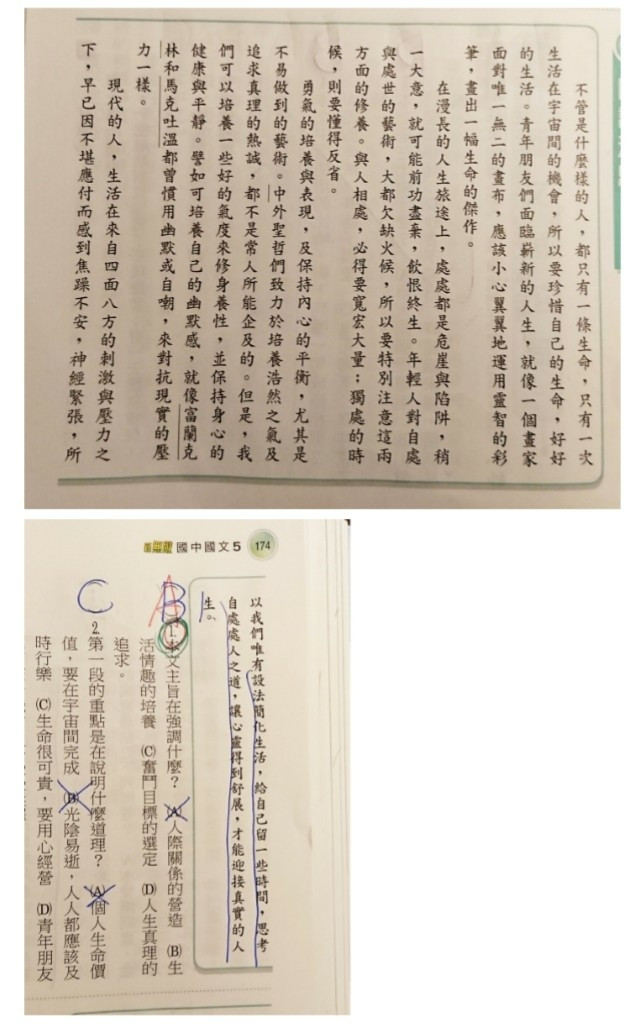 不管是什麼樣的人，都只有一條生命，只有一次
生活在宇宙間的機會，所以要珍惜自己的生命，好好
的生活。青年朋友們面臨嶄新的人生，就像一個畫家
面對唯一無二的畫布，應該小心翼翼地運用靈智的彩
筆，畫出一幅生命的傑作。
在漫長的人生旅途上，處處都是危崖與陷阱，稍
一大意，就可能前功盡棄，飲恨終生。年輕人對自處
與處世的藝術，大都欠缺火候，所以要特別注意這兩
方面的修養。與人相處，必得要寬宏大量；獨處的時
候，則要懂得反省。
勇氣的培養與表現，及保持內心的平衡，尤其是
不易做到的藝術。中外聖哲們致力於培養浩然之氣及
追求真理的熱誠，都不是常人所能企及的。但是，我
們可以培養一些好的氣度來修身養性，並保持身心的
健康與平靜。譬如可培養自己的幽默感，就像富蘭克
林和馬克吐溫都曾慣用幽默或自嘲，來對抗現實的壓
力一樣。
現代的人，生活在來自四面八方的刺激與壓力之
下，早已因不堪應付而感到焦躁不安，神經緊張，所
國中國文5 174
以我們唯有設法簡化生活，給自己留一些時間，思考
自處處人之道，讓心靈得到舒展，才能迎接真實的人
生。
A
B
1.本文主旨在強調什麼？ (A)人際關係的營造 (B)生
活情趣的培養 (C)奮鬥目標的選定 (D)人生真理的
追求。
C
2.第一段的重點是在說明什麼道理？ (A)個人生命價
值，要在宇宙間完成 (B)光陰易逝，人人都應該及
時行樂 (C)生命很可貴，要用心經營 (D)青年朋友